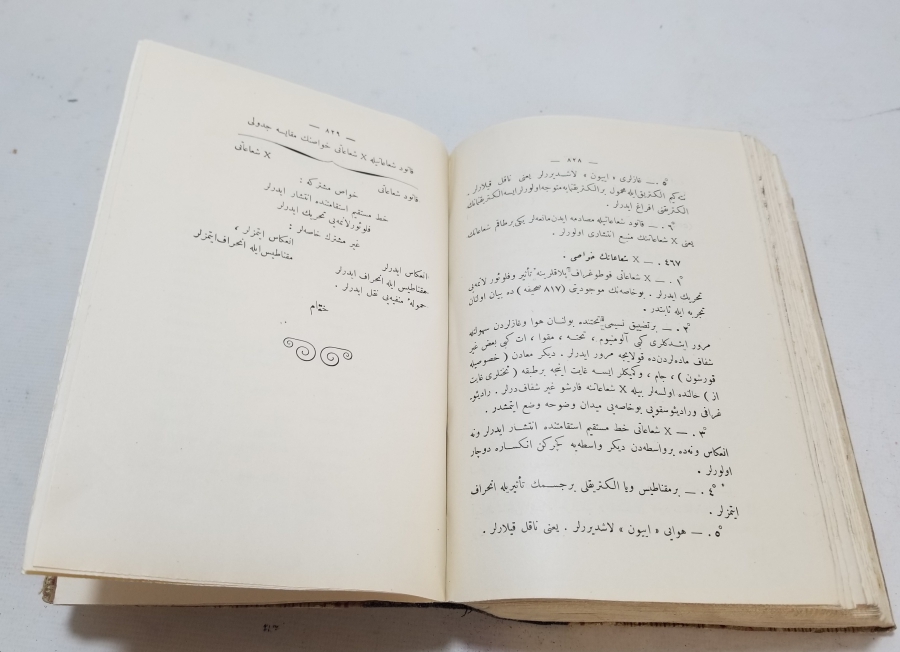 — ٨٢٨ —
٥ً . — غازلری « ایيون » لاشدیررلر یعنی ناقل قیلارلر .
الکتریقنی افراغ ایدرلر .
٦ً . — قاتود شعاعاتیله مصادمه ایدن مانعه‌لر یکی برطاقم شعاعاتك
یعنی X شعاعاتنك منبع انتشاری اولورلر .
٤٦٧ . — X شعاعاتك خواصی .
١ً . — X شعاعاتی فوطوغراف پلاقلرینه تأثیر وفلوئور لانمه‌یی
تحریك ایدرلر . بوخاصه‌نك موجودیتی ( ٨١٧ صحیفه ) ده بیان اولنان
تجربه ایله ثابتدر .
٢ً . — برتضییق نسیمی تحتنده بولنان هوا وغازلردن سهولتله
مرور ایتدکلری کبی آلومنیوم ، تخته ، مقوا ، ات کبی بعض غیر
شفاف ماده‌لردن‌ده قولایجه مرور ایدرلر . دیکر معادن ( خصوصیله
قورشون ) ، جام ، وکمیکلر ایسه غایت اینجه برطبقه ( ثخنلری غایت
از ) حالنده اولسه‌لر بیله X شعاعاتنه قارشو غیر شفافدرلر . رادیوغـ
غرافی ورادیوسقوپی بوخاصه‌یی میدان وضوحه وضع ایتمشدر .
٣ً . — X شعاعاتی خط مستقیم استقامتنده انتشار ایدرلر ونه
انعکاس ونه‌ده برواسطه‌دن دیکر واسطه‌یه کچرکن انکساره دوچار
اولورلر .
٤ً . — برمقناطیس ویا الکتریقلی برجسمك تأثیریله انحراف
ایتمزلر .
٥ً . — هوایی « ایيون » لاشدیررلر . یعنی ناقل قیلارلر .
— ٨٢٩ —
قاتود شعاعاتیله X شعاعاتی خواصنك مقایسه جدولی
قاتود شعاعاتی X شعاعاتی
خواص مشترکه :
خط مستقیم استقامتنده انتشار ایدرلر
فلوئورلانمه‌یی تحریك ایدرلر
غیر مشترك خاصه‌لر :
انعکاس ایدرلر انعکاس ایتمزلر ،
مقناطیس ایله انحراف ایدرلر مقناطیس‌ایله انحراف‌ایتمزلر
حموله‌ٔ منفیه‌یی نقل ایدرلر .
ختام